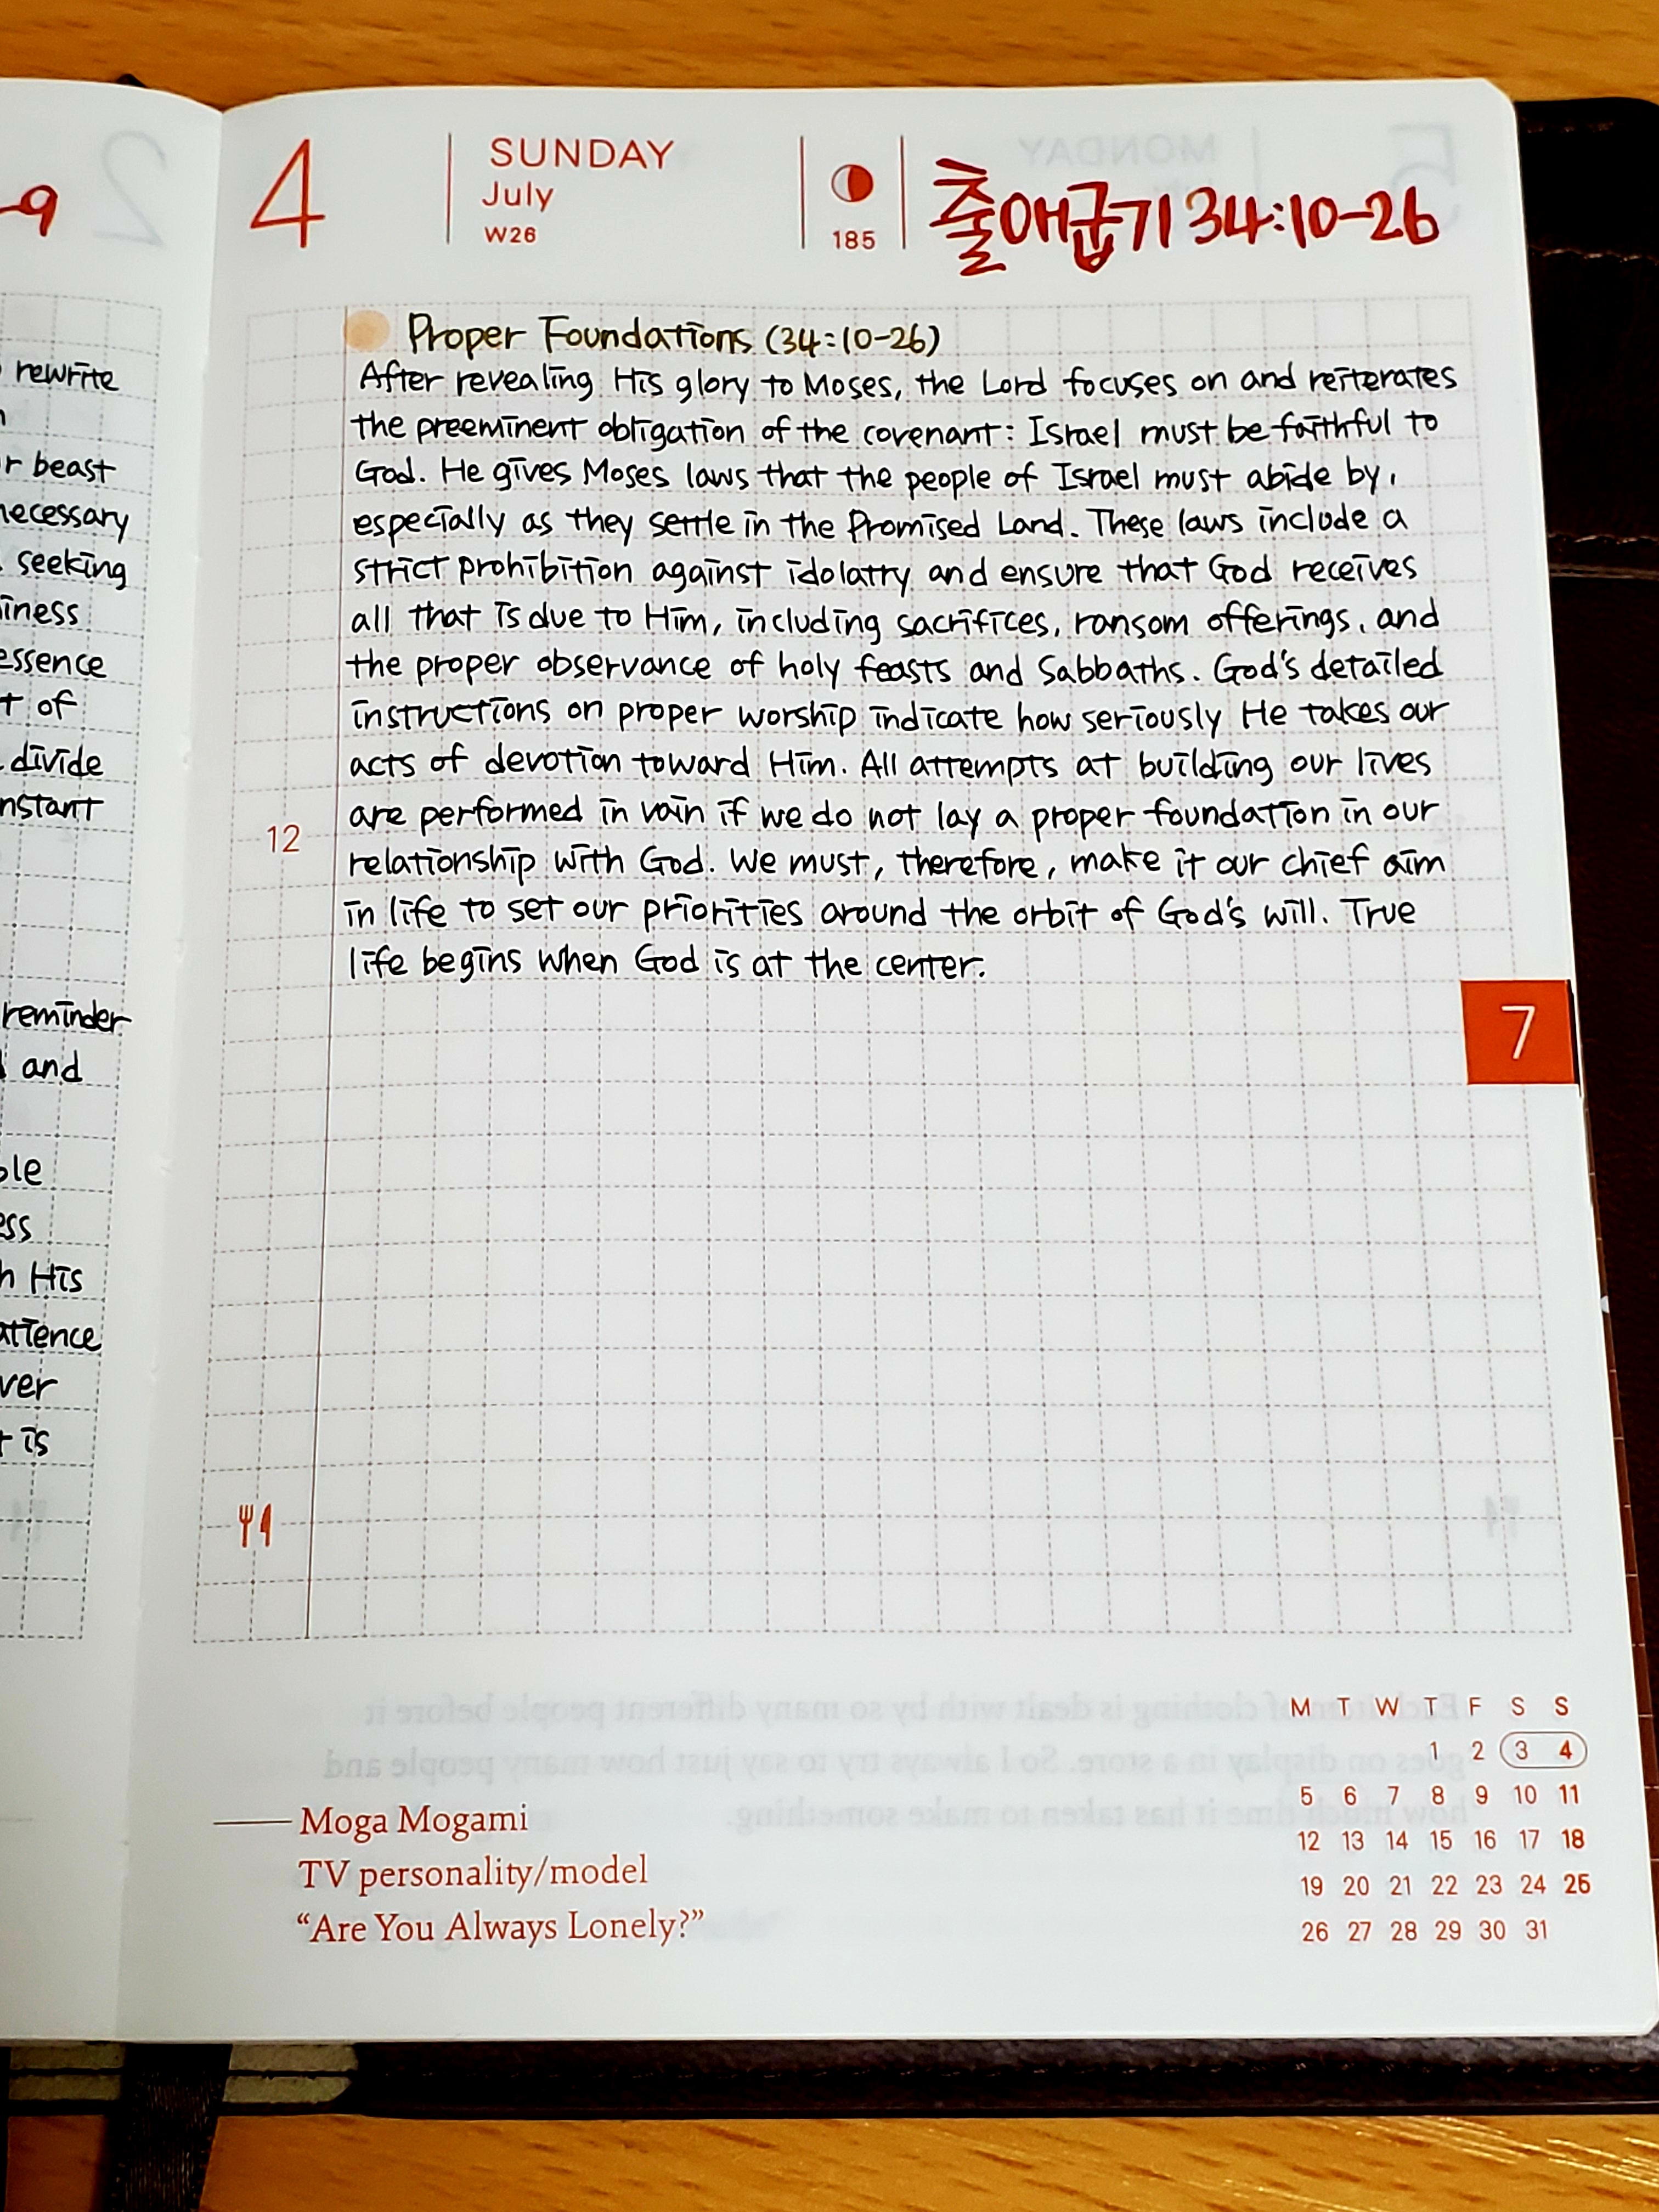 -9
rewrite
r beast
necessary
seeking
iness
essence
t of
divide
nstant
reminder
and
ble
ess
h His
atience
ver
t is
4
SUNDAY
July
W26
185
출애굽기 34:10-26
Proper Foundations (34:10-26)
After revealing His glory to Moses, the Lord focuses on and reiterates
the preeminent obligation of the covenant: Israel must be faithful to
God. He gives Moses laws that the people of Israel must abide by,
especially as they settle in the Promised Land. These laws include a
strict prohibition against idolatry and ensure that God receives
all that is due to Him, including sacrifices, ransom offerings, and
the proper observance of holy feasts and Sabbaths. God's detailed
instructions on proper worship indicate how seriously He takes our
acts of devotion toward Him. All attempts at building our lives
are performed in vain if we do not lay a proper foundation in our
12
relationship with God. We must, therefore, make it our chief aim
in life to set our priorities around the orbit of God's will. True
life begins when God is at the center.
7
Moga Mogami
TV personality/model
“Are You Always Lonely?”
M T W T F S S
1 2 3 4
5 6 7 8 9 10 11
12 13 14 15 16 17 18
19 20 21 22 23 24 25
26 27 28 29 30 31